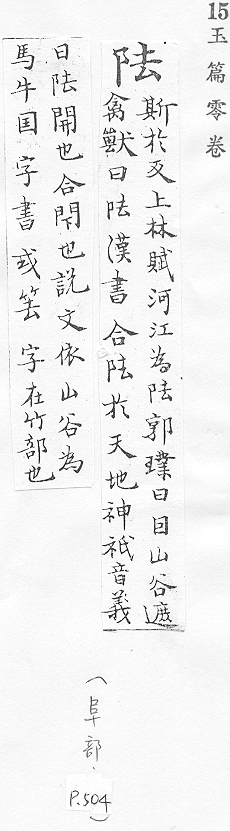 15玉篇零卷
阹
斯於反上林賦河江為阹郭璞曰因山谷遮
禽獸曰阹漢書合阹於天地神祇音義
曰阹開也合閇也説文依山谷為
馬牛圂字書或䇲字在竹部也
(阜部、
P.504)